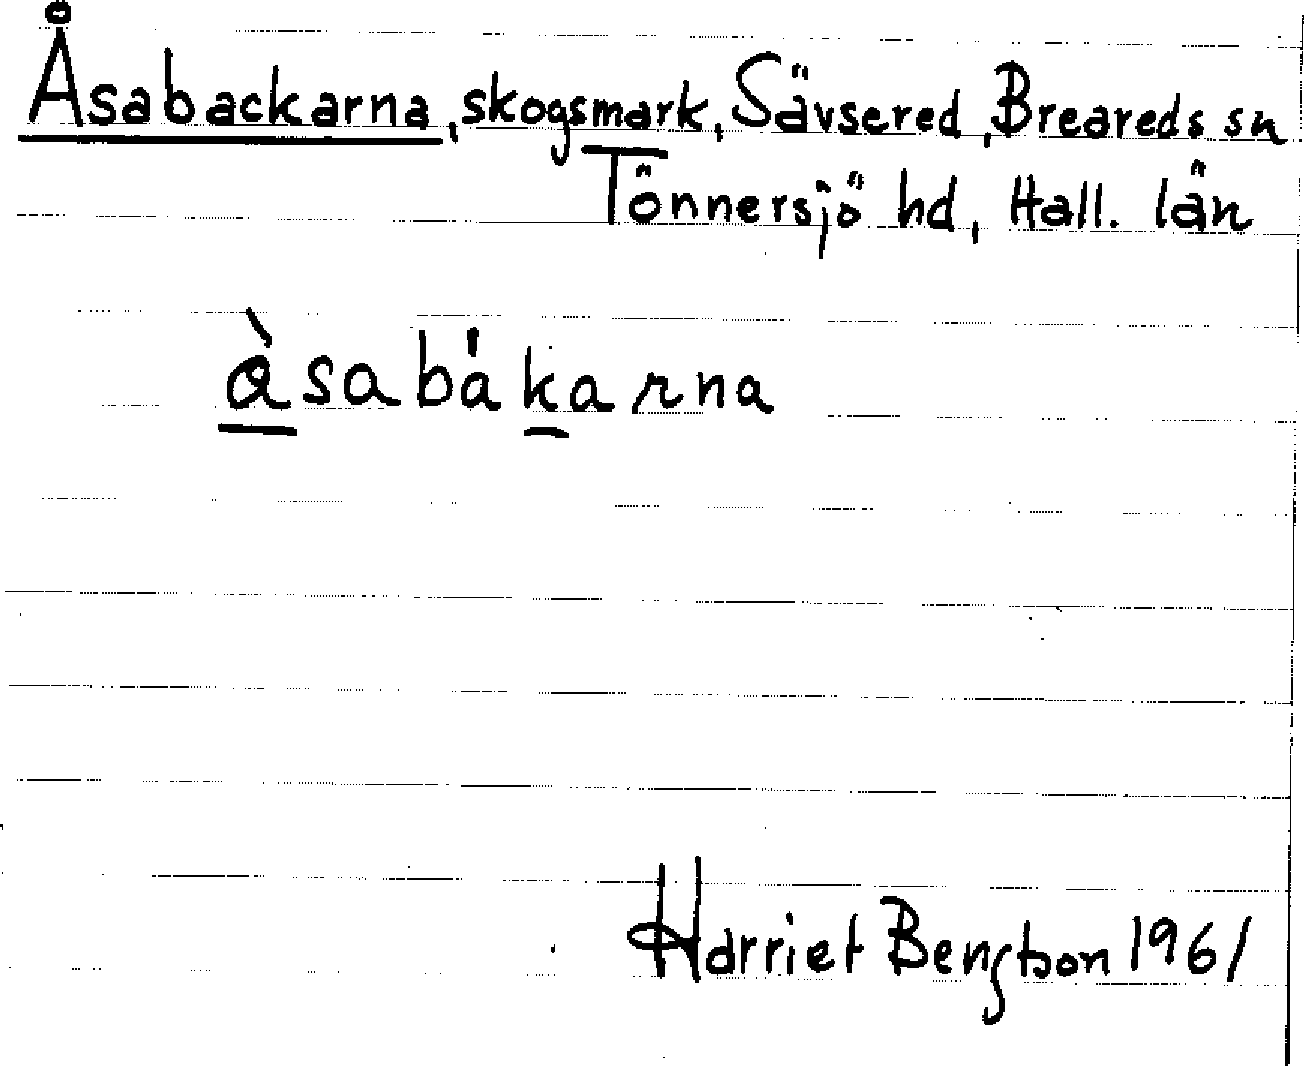 Åsabackarna, skogsmark, Sävsered, Breareds sn
Tönnersjö hd, Hall. län
àsabákarna
Harriet Bengtson 1961